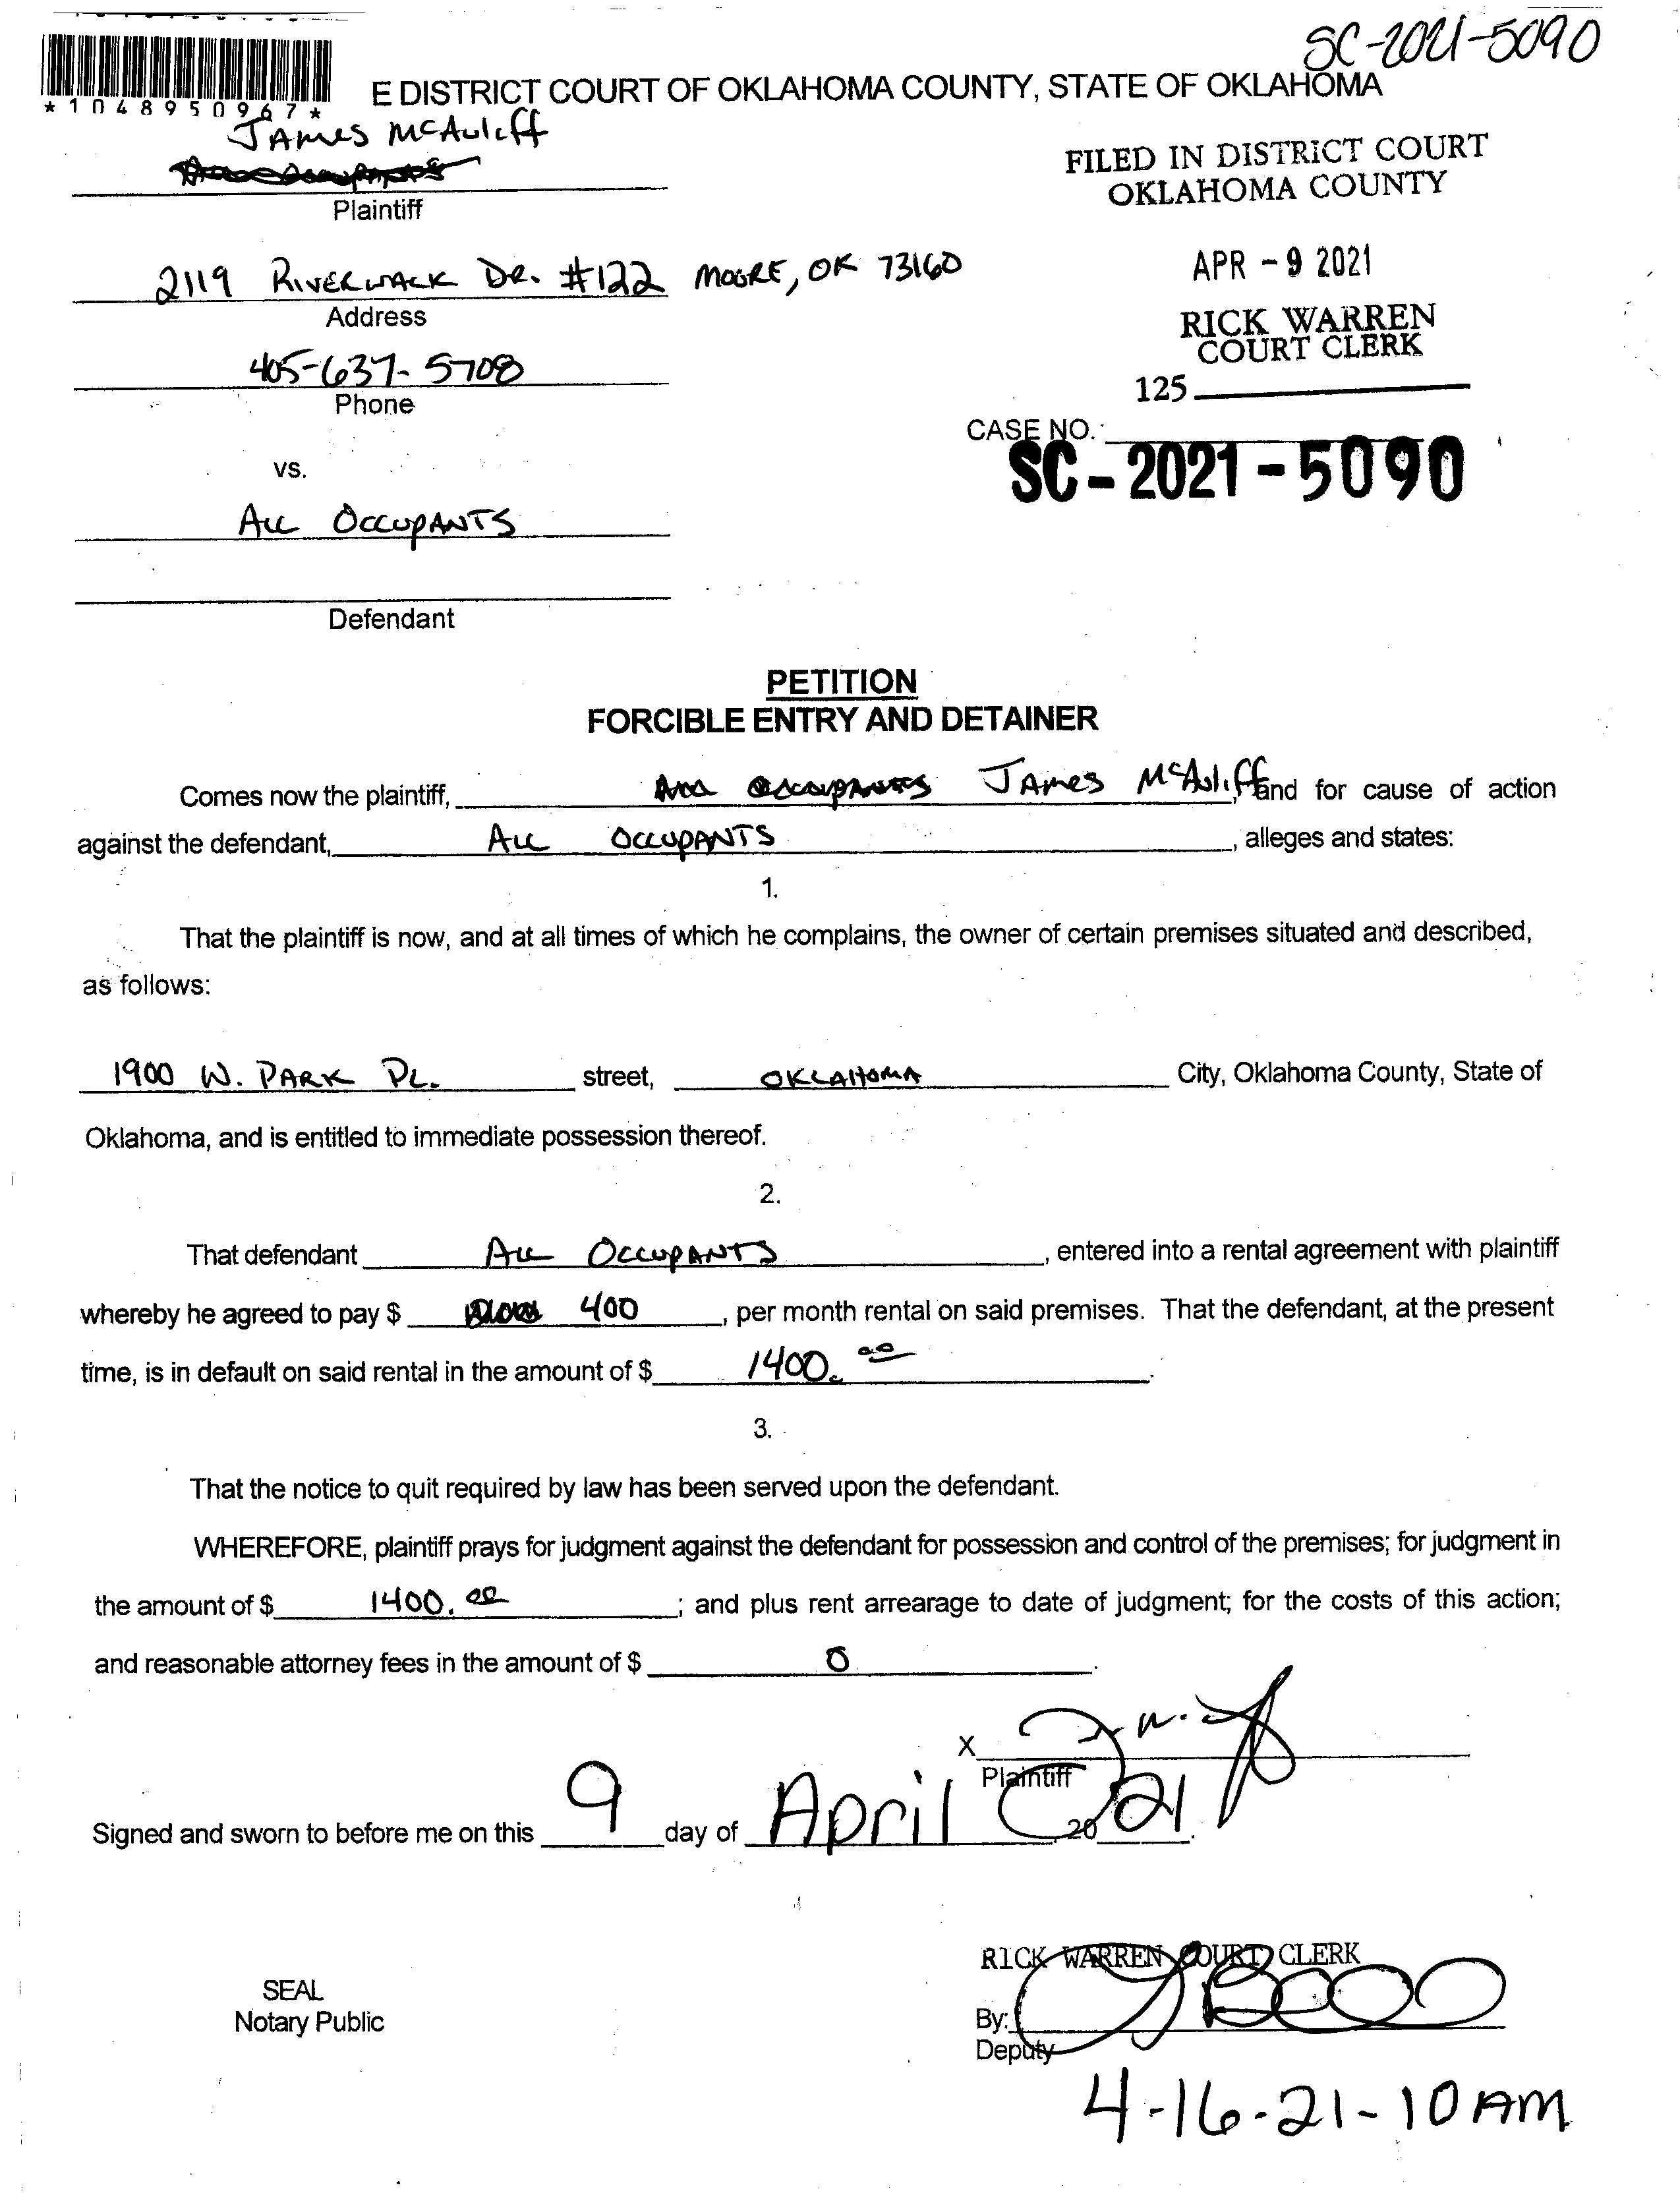 SC-2021-5090
E DISTRICT COURT OF OKLAHOMA COUNTY, STATE OF OKLAHOMA
*1048950967*
JAMES MCAULIFF
Plaintiff
FILED IN DISTRICT COURT
OKLAHOMA COUNTY
2119 RIVERWALK DR. #122 MOORE, OK 73160
Address
APR - 9 2021
RICK WARREN
COURT CLERK
405-637-5708
Phone
125
CASE NO.
SC - 2021 - 5090
vs.
ALL OCCUPANTS
Defendant
PETITION
FORCIBLE ENTRY AND DETAINER
Comes now the plaintiff, JAMES MCAULIFF, and for cause of action
against the defendant, ALL OCCUPANTS, alleges and states:
1.
That the plaintiff is now, and at all times of which he complains, the owner of certain premises situated and described,
as follows:
1900 W. PARK PL. street, OKLAHOMA City, Oklahoma County, State of
Oklahoma, and is entitled to immediate possession thereof.
2.
That defendant ALL OCCUPANTS, entered into a rental agreement with plaintiff
whereby he agreed to pay $ 400, per month rental on said premises. That the defendant, at the present
time, is in default on said rental in the amount of $ 1400.00.
3.
That the notice to quit required by law has been served upon the defendant.
WHEREFORE, plaintiff prays for judgment against the defendant for possession and control of the premises; for judgment in
the amount of $ 1400.00; and plus rent arrearage to date of judgment; for the costs of this action;
and reasonable attorney fees in the amount of $ 0.
X
Plaintiff
Signed and sworn to before me on this 9 day of April, 2021.
RICK WARREN COURT CLERK
SEAL
Notary Public
By:
Deputy
4-16-21-10AM